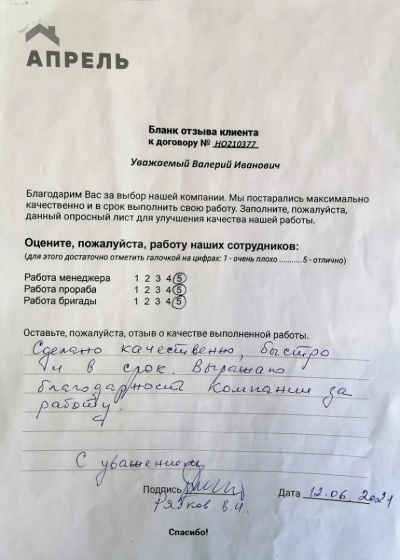 АПРЕЛЬ
Бланк отзыва клиента
к договору № НО210377
Уважаемый Валерий Иванович
Благодарим Вас за выбор нашей компании. Мы постарались максимально
качественно и в срок выполнить свою работу. Заполните, пожалуйста,
данный опросный лист для улучшения качества нашей работы.
Оцените, пожалуйста, работу наших сотрудников:
(для этого достаточно отметить галочкой на цифрах: 1 - очень плохо ...........5 - отлично)
Работа менеджера 1 2 3 4 5
Работа прораба 1 2 3 4 5
Работа бригады 1 2 3 4 5
Оставьте, пожалуйста, отзыв о качестве выполненной работы.
Сделано качественно, быстро
и в срок. Выражаю
благодарность компании за
работу.
С уважением
Подпись Дата 12.06.2021
Рябков В.И.
Спасибо!